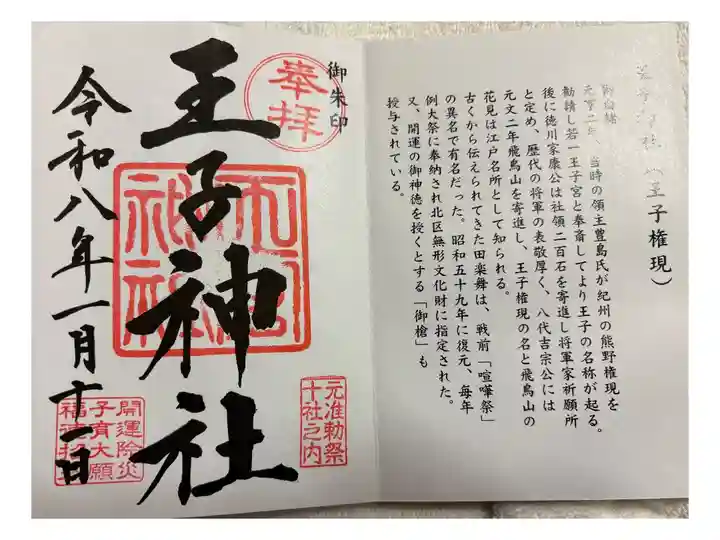 御朱印
奉拝
王子神社
令和八年一月十一日
元准勅祭
十社之内
開運除災
子育大願
王子権現)
御由緒
元亨二年、当時の領主豊島氏が紀州の熊野権現を
勧請し若一王子宮と奉斎してより王子の名称が起る。
後に徳川家康公は社領二百石を寄進し将軍家祈願所
と定め、歴代の将軍の表敬厚く、八代吉宗公には
元文二年飛鳥山を寄進し、王子権現の名と飛鳥山の
花見は江戸名所として知られる。
古くから伝えられてきた田楽舞は、戦前「喧嘩祭」
の異名で有名だった。昭和五十九年に復元、毎年
例大祭に奉納され北区無形文化財に指定された。
又、開運の御神徳を授くとする「御槍」も
授与されている。